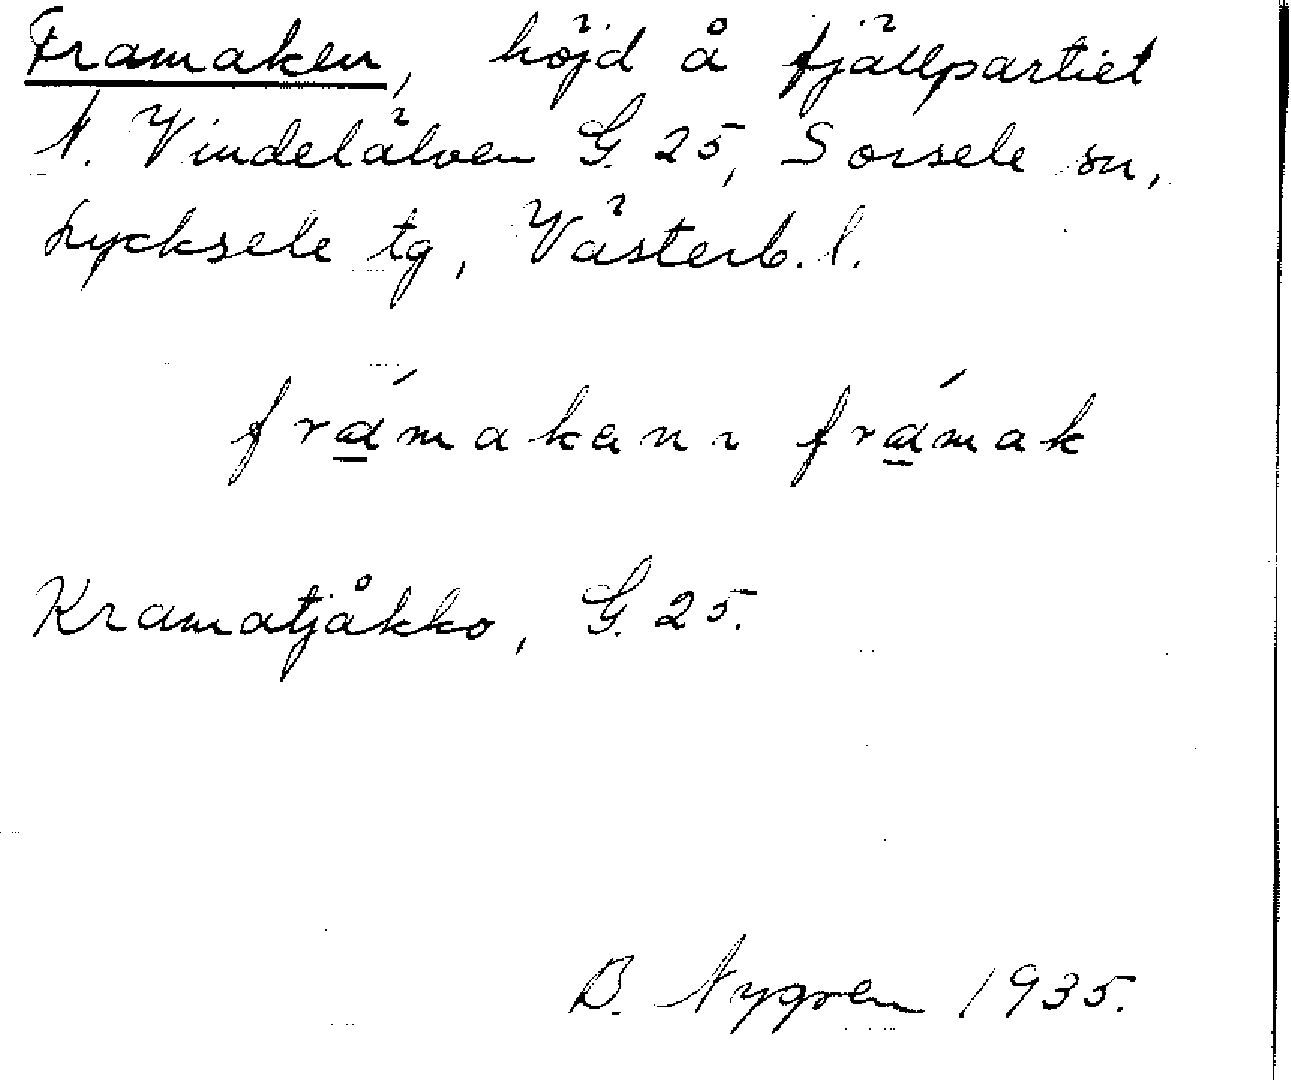 Framaken, höjd å fjällpartiet
N. Vindelälven G. 25, Sorsele sn,
Lycksele tg, Västerb. l.
frámakan ɿ frámak
Kramatjåkko, G. 25.
B. Nygren 1935.